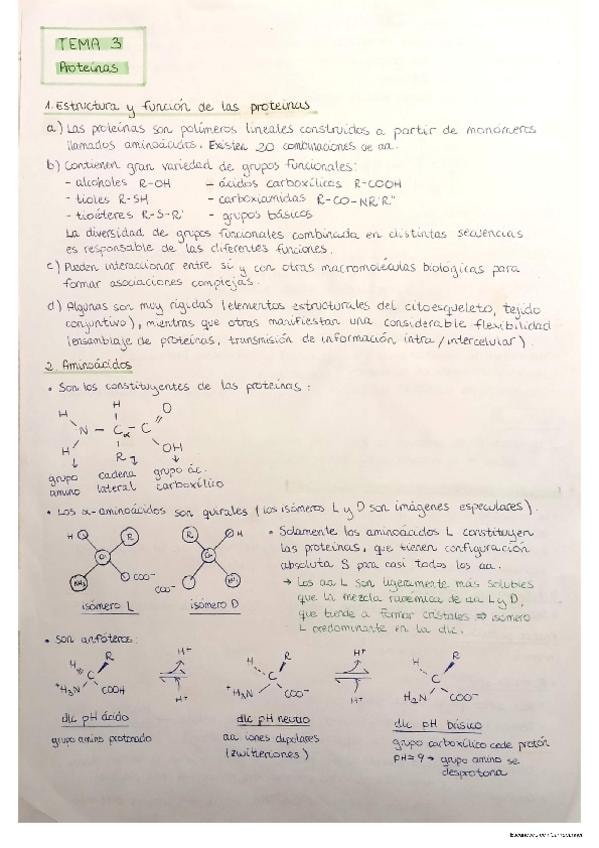 TEMA 3
Proteínas
1. Estructura y función de las proteínas
a) Las proteínas son polímeros lineales construidos a partir de monómeros
llamados aminoácidos. Existen 20 combinaciones de aa.
b) Contienen gran variedad de grupos funcionales:
- alcoholes R-OH - ácidos carboxílicos R-COOH
- tioles R-SH - carboxiamidas R-CO-NR'R''
- tioéteres R-S-R' - grupos básicos
La diversidad de grupos funcionales combinada en distintas secuencias
es responsable de las diferentes funciones.
c) Pueden interaccionar entre sí y con otras macromoléculas biológicas para
formar asociaciones complejas.
d) Algunas son muy rígidas (elementos estructurales del citoesqueleto, tejido
conjuntivo), mientras que otras manifiestan una considerable flexibilidad
(ensamblaje de proteínas, transmisión de información intra/intercelular).
2. Aminoácidos
• Son los constituyentes de las proteínas:
H H O
N - Cα - C
H R OH
grupo cadena grupo ác.
amino lateral carboxílico
• Los α-aminoácidos son quirales (los isómeros L y D son imágenes especulares).
H R R H
Cα Cα
NH₃ COO⁻ COO⁻ NH₃
isómero L isómero D
• Solamente los aminoácidos L constituyen
las proteínas, que tienen configuración
absoluta S para casi todos los aa.
→ Los aa L son ligeramente más solubles
que la mezcla racémica de aa L y D,
que tiende a formar cristales ⇒ isómero
L predominante en la dlc.
• Son anfóteros:
H R H⁺ H R H⁺ H R
C C C
⁺H₃N COOH H⁺ ⁺H₃N COO⁻ H⁺ H₂N COO⁻
dlc pH ácido dlc pH neutro dlc pH básico
grupo amino protonado aa iones dipolares grupo carboxílico cede protón
(zwitteriones) pH≈9 → grupo amino se
desprotona